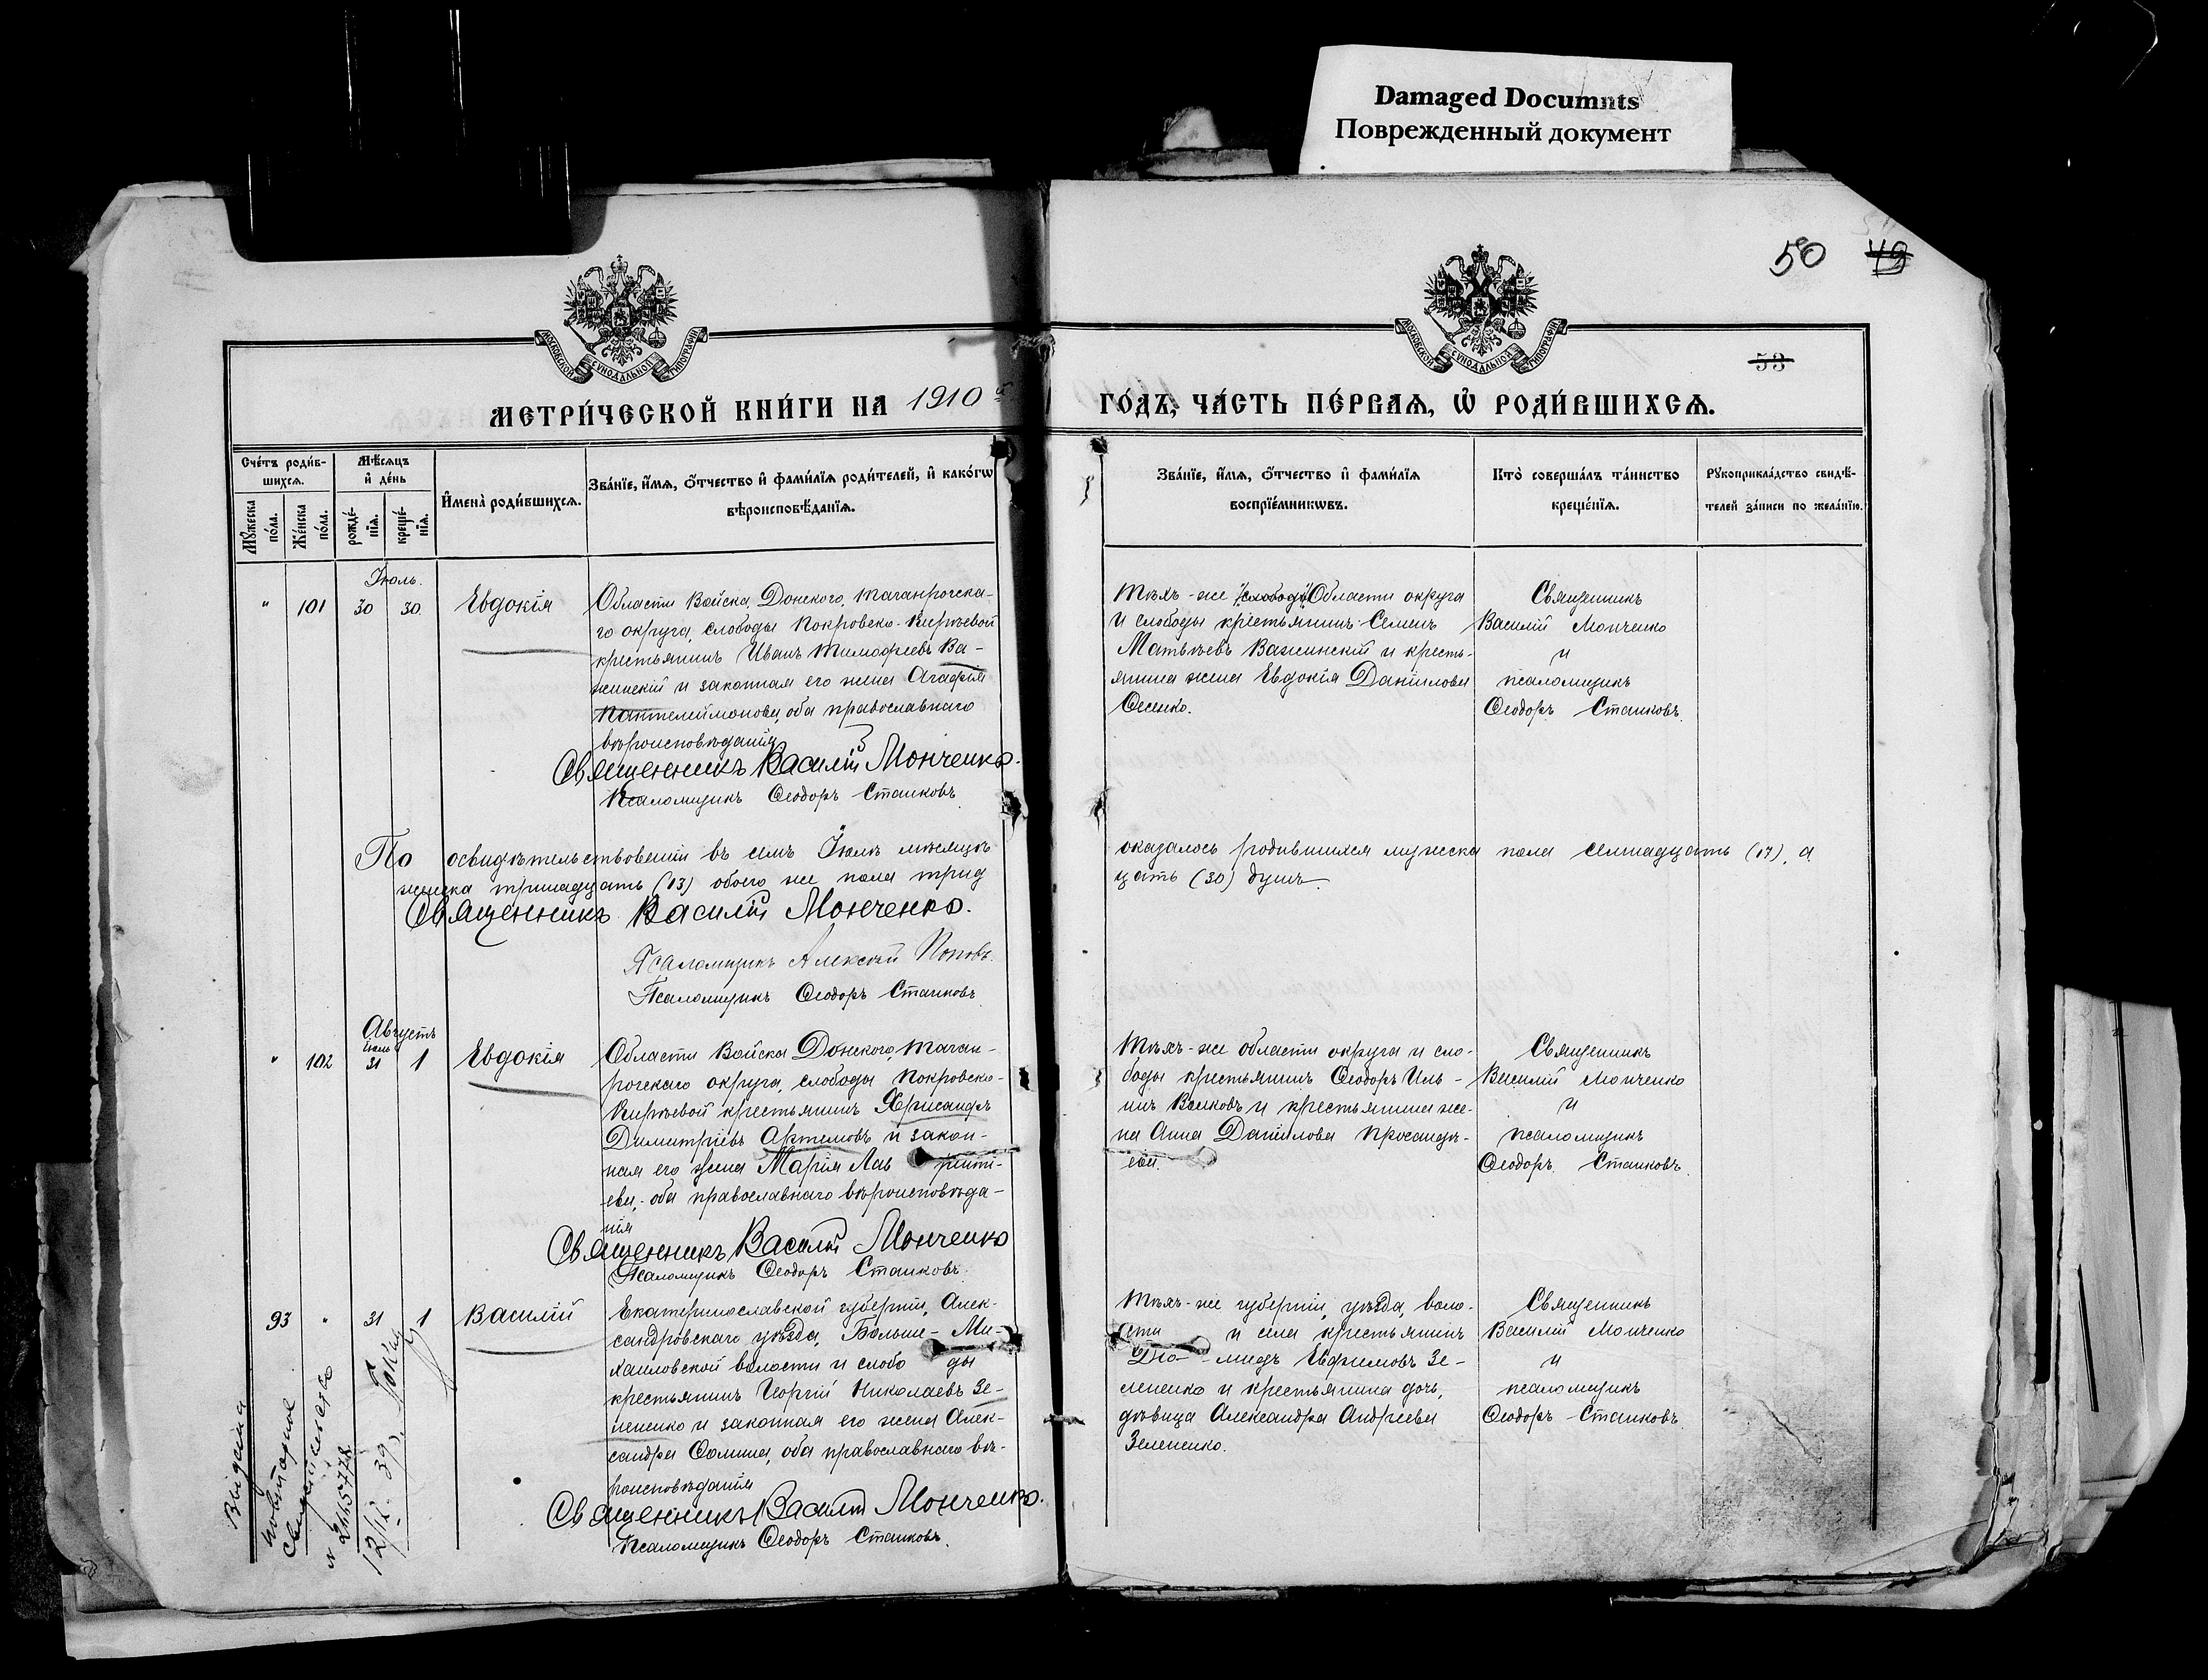 Damaged Documnts
Поврежденный документ
50 49
53
МОСКОВСКОЙ СѴНОДАЛЬНОЙ ТИПОГРАФІИ
МОСКОВСКОЙ СѴНОДАЛЬНОЙ ТИПОГРАФІИ
МЕТРИ́ЧЕСКОЙ КНИ́ГИ НА 1910 й
ГО́ДЪ, ЧА́СТЬ ПЕ́РВАѦ, Ѡ҆ РОДИ́ВШИХСѦ.
Сче́тъ роди́в-
шихсѧ.
Мꙋ́жеска
по́ла.
Же́нска
по́ла.
Мѣ́сѧцъ
и҆ де́нь
рожде́-
нїѧ.
креще́-
нїѧ.
И҆мена̀ роди́вшихсѧ.
Зва́нїе, и҆́мѧ, ѻ҆́тчество и҆ фами́лїѧ роди́телей, и҆ како́гѡ
вѣроисповѣ́данїѧ.
Зва́нїе, и҆́мѧ, ѻ҆́тчество и҆ фами́лїѧ
воспрїе́мникѡвъ.
Кто̀ соверша́лъ та́инство
креще́нїѧ.
Рꙋкоприкла́дство свидѣ́-
телей за́писи по жела́нїю.
Іюль.
" 101 30 30 Евдокія
Области Войска Донского, Таганрогска-
го округа, слободы Покровско-Кирѣевой
крестьянинъ Иванъ Тимофеевъ Ва-
жинскій и законная его жена Агафія
Пантелеймонова, оба православнаго
вѣроисповѣданія
Священникъ Василій Монченко.
Псаломщикъ Ѳеодоръ Станковъ
Тѣхъ-же "слободы" Области округа
и слободы крестьянинъ Семенъ
Матвѣевъ Важинскій и кресть-
янина жена Евдокія Даніилова
Фесенко.
Священникъ
Василій Монченко
и
псаломщикъ
Ѳеодоръ Станковъ.
По освидѣтельствованіи въ семъ Іюлѣ мѣсяцѣ
оказалось родившихся мужеска пола семнадцать (17), а
женска тринадцать (13) обоего же пола трид
цать (30) душъ.
Священникъ Василій Монченко.
Псаломщикъ Алексѣй Поповъ.
Псаломщикъ Ѳеодоръ Станковъ
Августъ
Іюль
" 102 31 1 Евдокія
Области Войска Донского, Таган-
рогскаго округа, слободы Покровско-
Кирѣевой крестьянинъ Хрисанфъ
Димитріевъ Артемовъ и закон-
ная его жена Марія Лав рентi-
ева, оба православнаго вѣроисповѣда-
нія
Священникъ Василій Монченко
Псаломщикъ Ѳеодоръ Станковъ.
Тѣхъ-же области округа и сло-
боды крестьянинъ Ѳеодоръ Иль-
инъ Волковъ и крестьянина же-
на Анна Даніилова
ева.
Священникъ
Василій Монченко
и
псаломщикъ
Ѳеодоръ Станковъ.
93 " 31 1 Василій
Екатеринославской губерніи, Алек-
сандровскаго уѣзда, Больше-Ми-
хаиловской волости и слобо ды
крестьянинъ Георгій Николаевъ Зе-
лененко и законная его жена Алек-
сандра Ѳомина, оба православнаго вѣ-
роисповѣданія
Священникъ Василій Монченко.
Псаломщикъ Ѳеодоръ Станковъ.
Тѣхъ-же губерніи, уѣзда, воло-
сти и села крестьянинъ
Діо-мидъ Евфимовъ Зе-
лененко и крестьянина дочь,
дѣвица Александра Андреева
Зелененко.
Священникъ
Василій Монченко
и
псаломщикъ
Ѳеодоръ Станковъ.
Выдана
повторное
свидетельство
12/12-39 г.